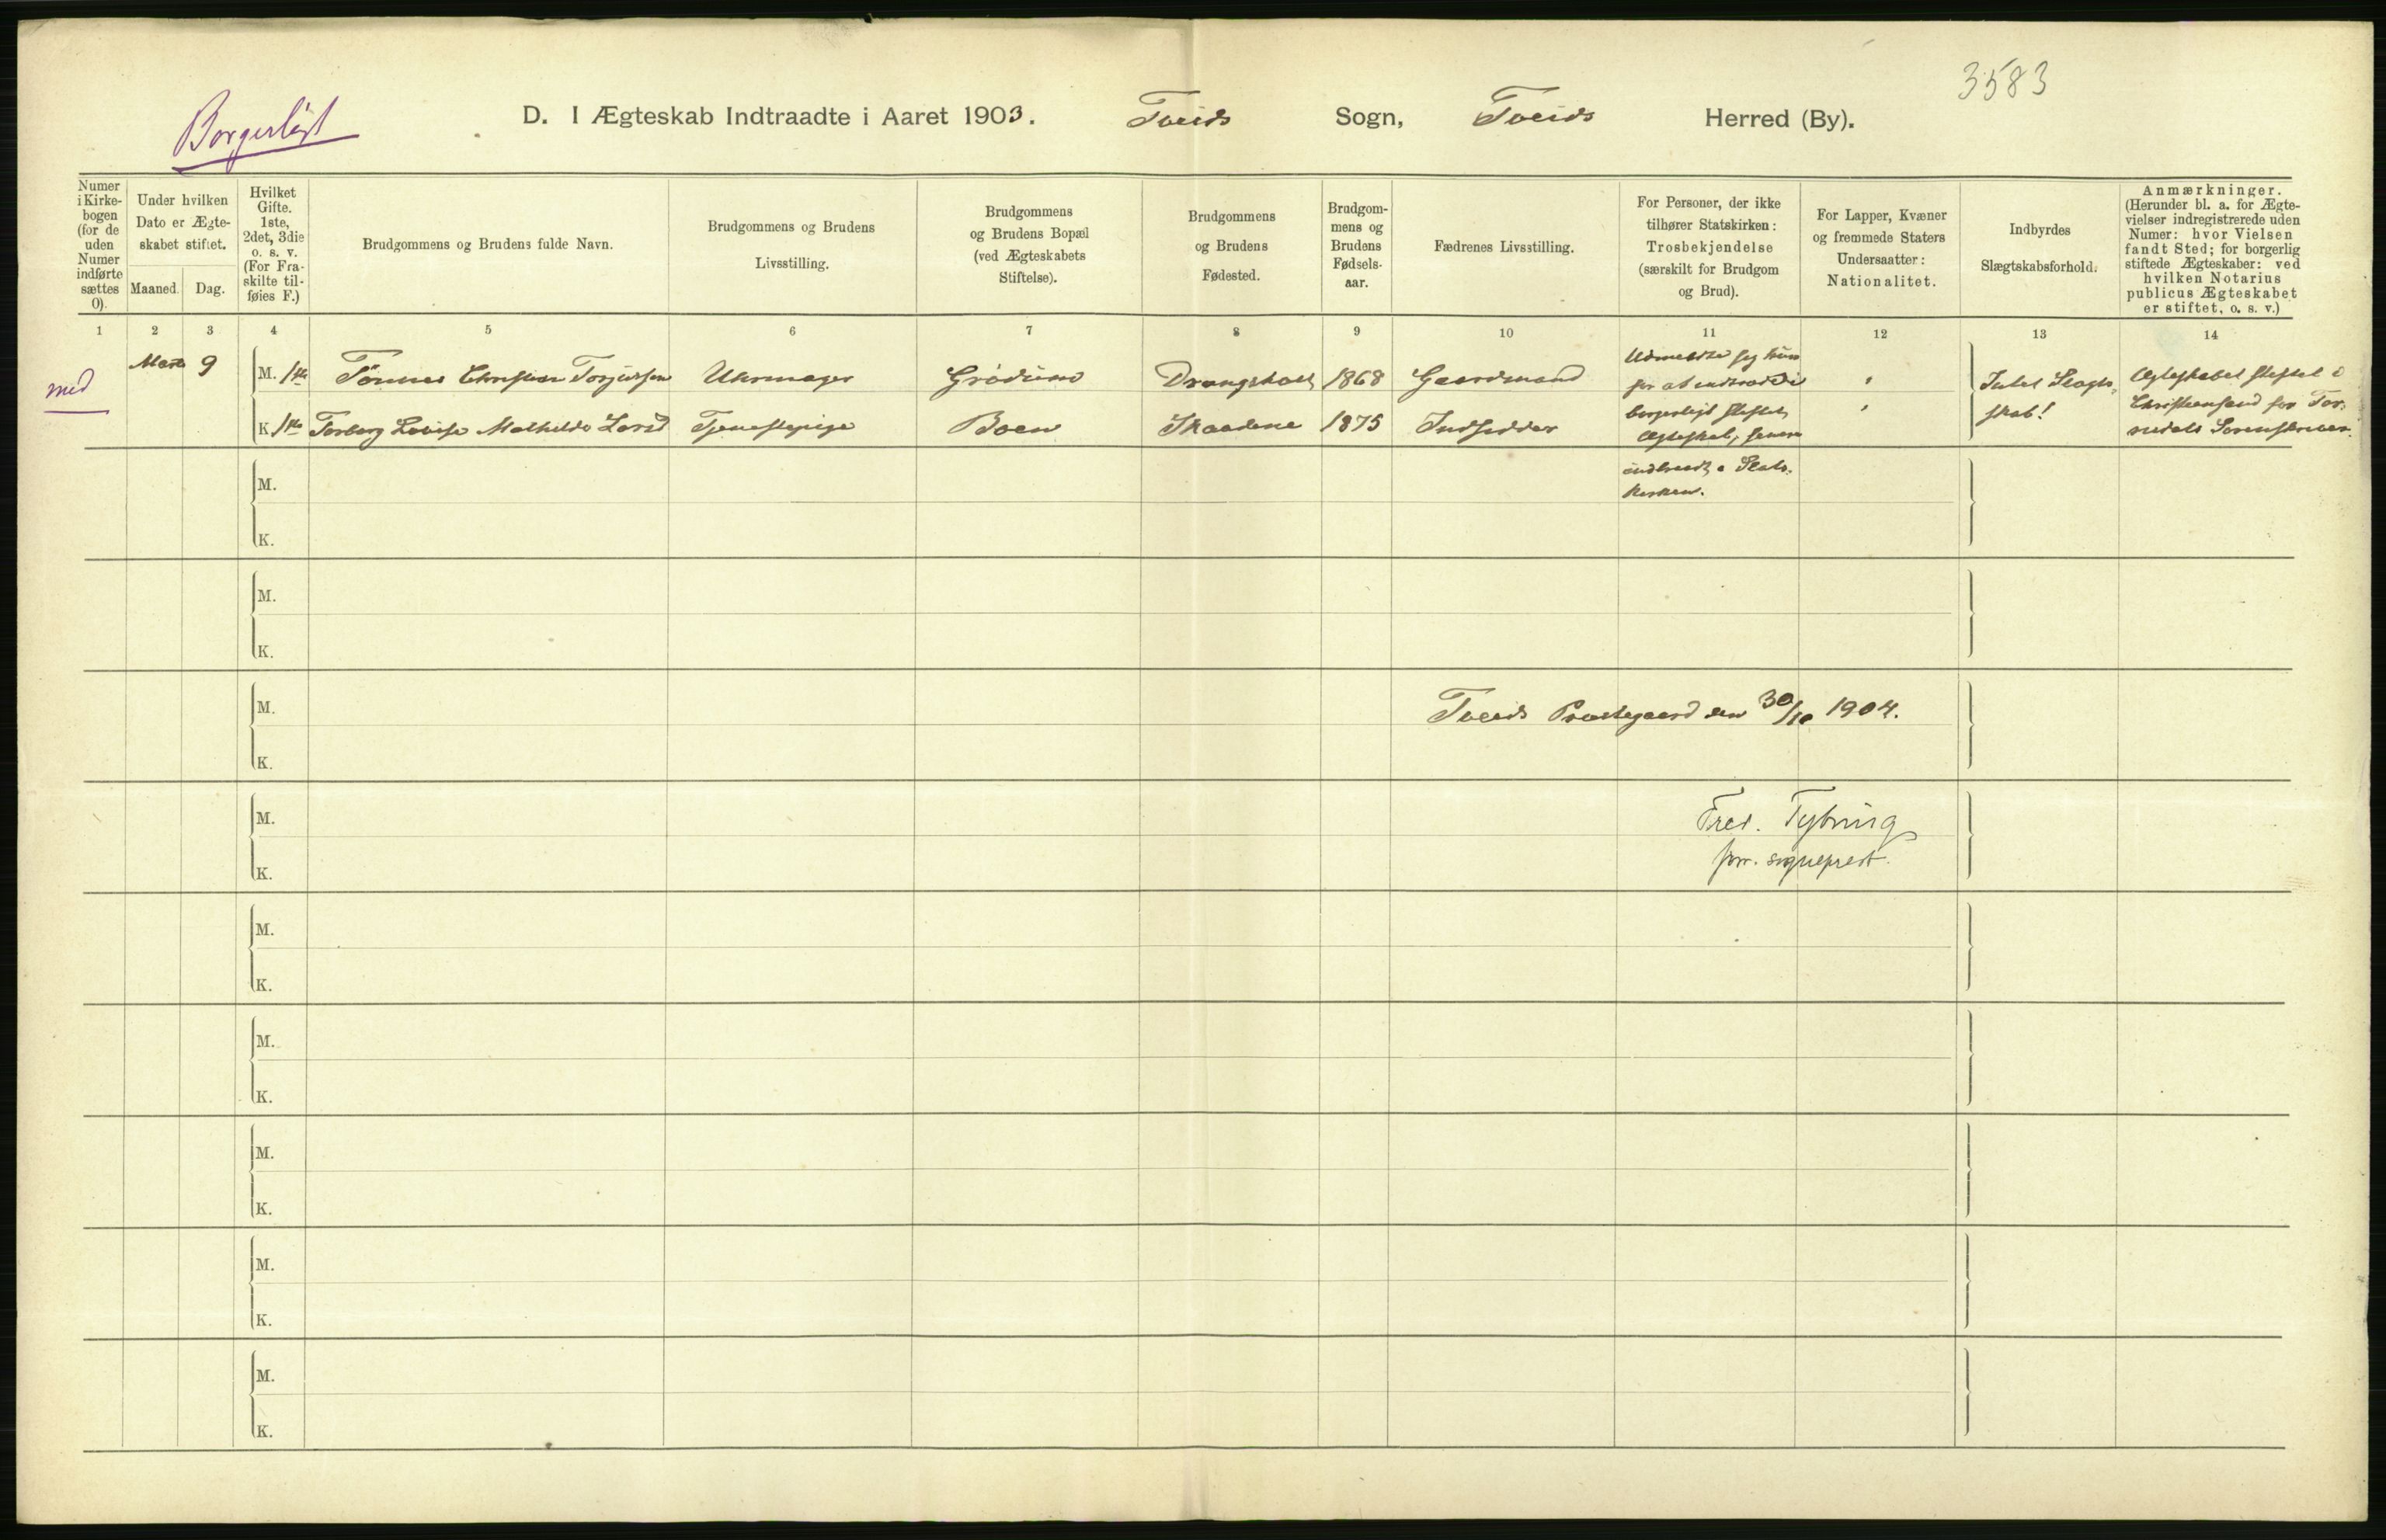 3583
Borgerligt
D. I Ægteskab Indtraadte i Aaret 1903. Tveids Sogn, Tveids Herred (By).
Numer i Kirke-bogen (for de uden Numer indførte sættes 0).
Under hvilken Dato er Ægte-skabet stiftet.
Maaned. Dag.
Hvilket Gifte. 1ste, 2det, 3die o. s. v. (For Fra-skilte til-føies F.)
Brudgommens og Brudens fulde Navn.
Brudgommens og Brudens Livsstilling.
Brudgommens og Brudens Bopæl (ved Ægteskabets Stiftelse).
Brudgommens og Brudens Fødested.
Brudgom-mens og Brudens Fødsels-aar.
Fædrenes Livsstilling.
For Personer, der ikke tilhører Statskirken: Trosbekjendelse (særskilt for Brudgom og Brud).
For Lapper, Kvæner og fremmede Staters Undersaatter: Nationalitet.
Indbyrdes Slægtskabsforhold.
Anmærkninger. (Herunder bl. a. for Ægte-vielser indregistrerede uden Numer: hvor Vielsen fandt Sted; for borgerlig stiftede Ægteskaber: ved hvilken Notarius publicus Ægteskabet er stiftet, o. s. v.)
1 2 3 4 5 6 7 8 9 10 11 12 13 14
med
Marts 9 M. 1ste Tönnes Christian Torjussen Uhrmager Grödum Drangsholt 1868 Gaardmand
K. 1ste Torborg Lovise Mathilde Tjenestepige Boen 1875 Indsidder
Udmeldte sig kun
for at indtræde i
borgerligt stiftet
Ægteskab, senere
indtraadt i Stats-
kirken.
Intet Slægt-
skab!
Ægteskabet stiftet i
Christiansand for Tor-
ridals Sorenskriver.
M.
K.
M.
K.
M.
K.
Tveids Præstegaard den 30/10 1904.
M.
K.
Fred. Tybring
sogneprest.
M.
K.
M.
K.
M.
K.
M.
K.
M.
K.